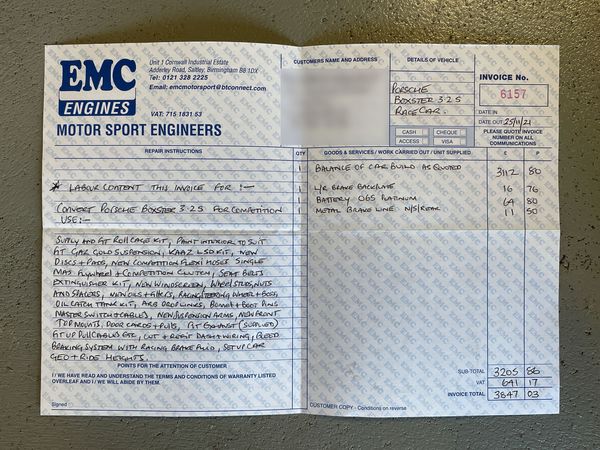 EMC
ENGINES
Unit 1 Cornwall Industrial Estate
Adderley Road, Saltley, Birmingham B8 1DX
Tel: 0121 328 2225
Email: emcmotorsport@btconnect.com
VAT: 715 1831 53
MOTOR SPORT ENGINEERS
CUSTOMERS NAME AND ADDRESS
DETAILS OF VEHICLE
PORSCHE
BOXSTER 3.2 S
RACE CAR.
CASH
CHEQUE
ACCESS
VISA
INVOICE No.
6157
DATE IN
DATE OUT 25/11/21
PLEASE QUOTE INVOICE
NUMBER ON ALL
COMMUNICATIONS
REPAIR INSTRUCTION
* LABOUR CONTENT THIS INVOICE FOR :-
CONVERT PORSCHE BOXSTER 3.2 S FOR COMPETITION
USE:-
SUPPLY AND FIT ROLL CAGE KIT, PAINT INTERIOR TO SUIT
FIT GAZ GOLD SUSPENSION, KAAZ LSD KIT, NEW
DISCS + PADS, NEW COMPETITION FLEXI HOSES SINGLE
MAS FLYWHEEL + COMPETITION CLUTCH, SEAT BELTS
EXTINGUISHER KIT, NEW WINDSCREEN, WHEEL STUDS, NUTS
AND SPACERS, NEW OILS + FILTERS, RACING STEERING WHEEL + BOSS,
OIL CATCH TANK KIT, ARB DROPLINKS, BONNET + BOOT PINS
MASTER SWITCH + CABLES, NEW SUSPENSION ARMS, NEW FRONT
TOP MOUNTS. DOOR CARDS + PULLS, FIT EXHAUST (SUPPLIED)
FIT UP PULL CABLES ETC, CUT + REFIT DASH + WIRING, BLEED
BRAKING SYSTEM WITH RACING BRAKE FLUID, SET UP CAR
GEO + RIDE HEIGHTS.
POINTS FOR THE ATTENTION OF CUSTOMER
I / WE HAVE READ AND UNDERSTAND THE TERMS AND CONDITIONS OF WARRANTY LISTED
OVERLEAF AND I / WE WILL ABIDE BY THEM.
Signed :
QTY
GOODS & SERVICES / WORK CARRIED OUT / UNIT SUPPLIED
£
P
1 BALANCE OF CAR BUILD AS QUOTED 3112 80
1 L/R BRAKE BACKPLATE 16 76
1 BATTERY 065 PLATINUM 64 80
1 METAL BRAKE LINE N/S/REAR 11 50
SUB-TOTAL 3205 86
VAT 641 17
INVOICE TOTAL 3847 03
CUSTOMER COPY - Conditions on reverse